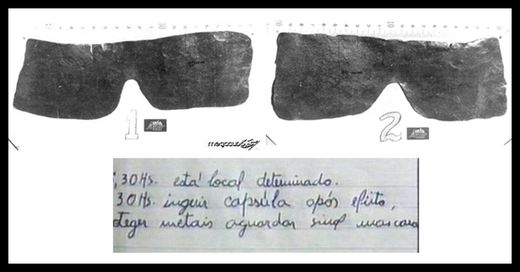 1
2
,30 Hs. está local determinado.
30 Hs. ingerir capsúla após efeito,
teger metais aguardar sinal mascara